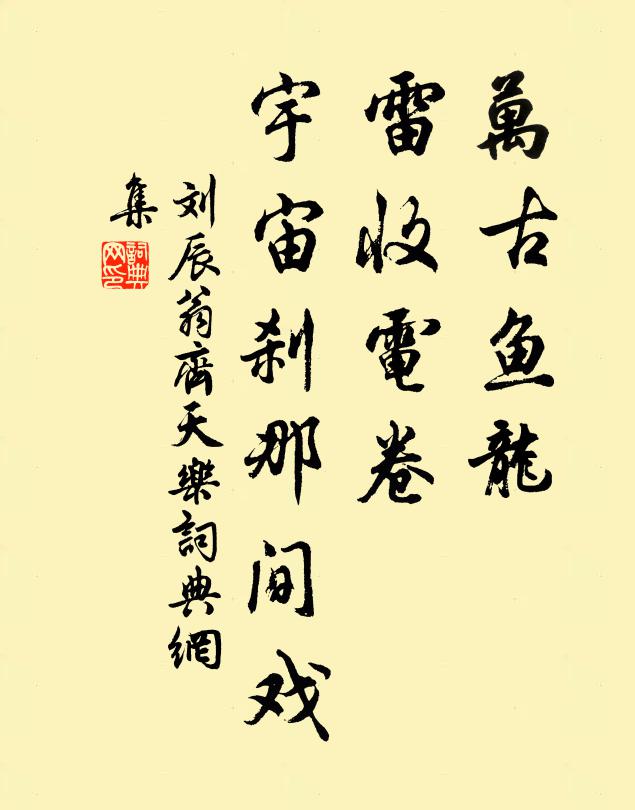 萬古鱼龍
雷收電卷
宇宙刹那间戏
刘辰翁齊天樂詞典網
集
詞典网印